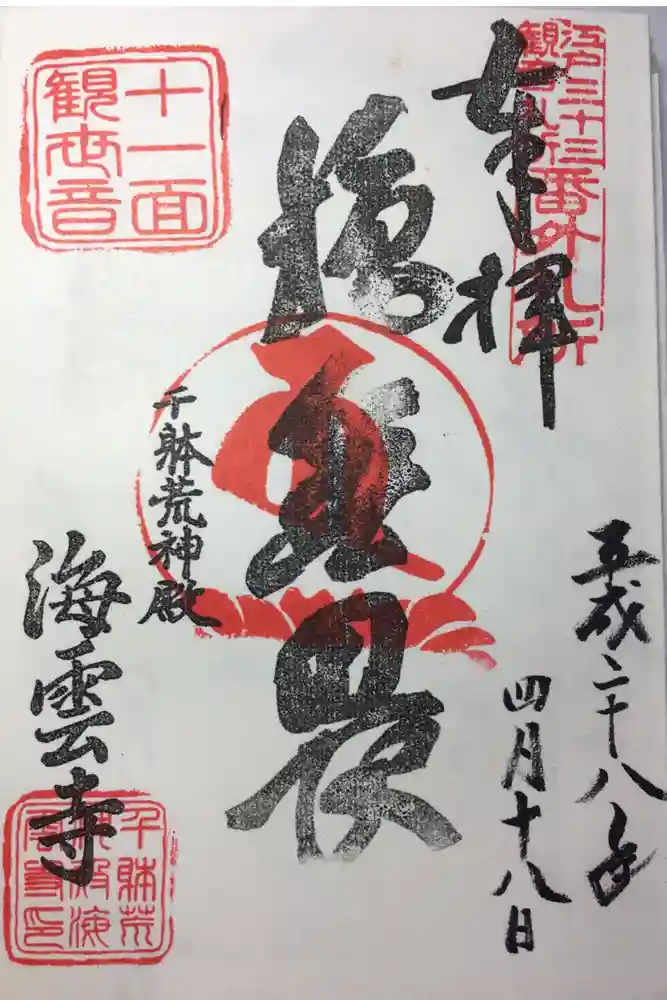 江戸三十三
観音札所
番外札所
奉拝
平成二十八年
四月十八日
施無畏
千躰荒神殿
海雲寺
十一面
観世音
千躰荒
神殿海
雲寺印